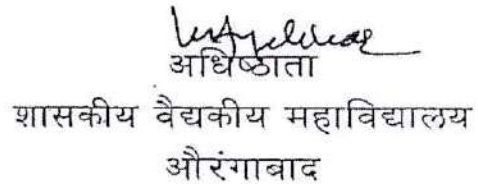 अधिष्ठाता
शासकीय वैद्यकीय महाविद्यालय
औरंगाबाद